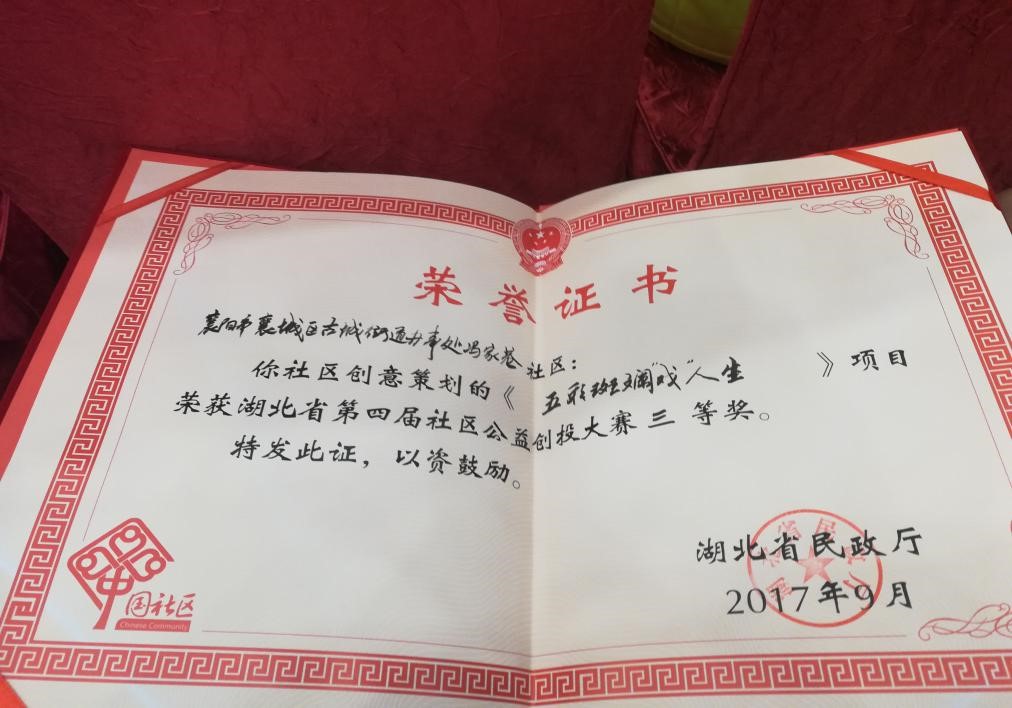 荣誉证书
襄阳市襄城区古城街道办事处冯家巷社区：
你社区创意策划的《五彩斑斓"戏"人生》项目
荣获湖北省第四届社区公益创投大赛三等奖。
特发此证，以资鼓励。
湖北省民政厅
2017年9月
中国社区
Chinese Community